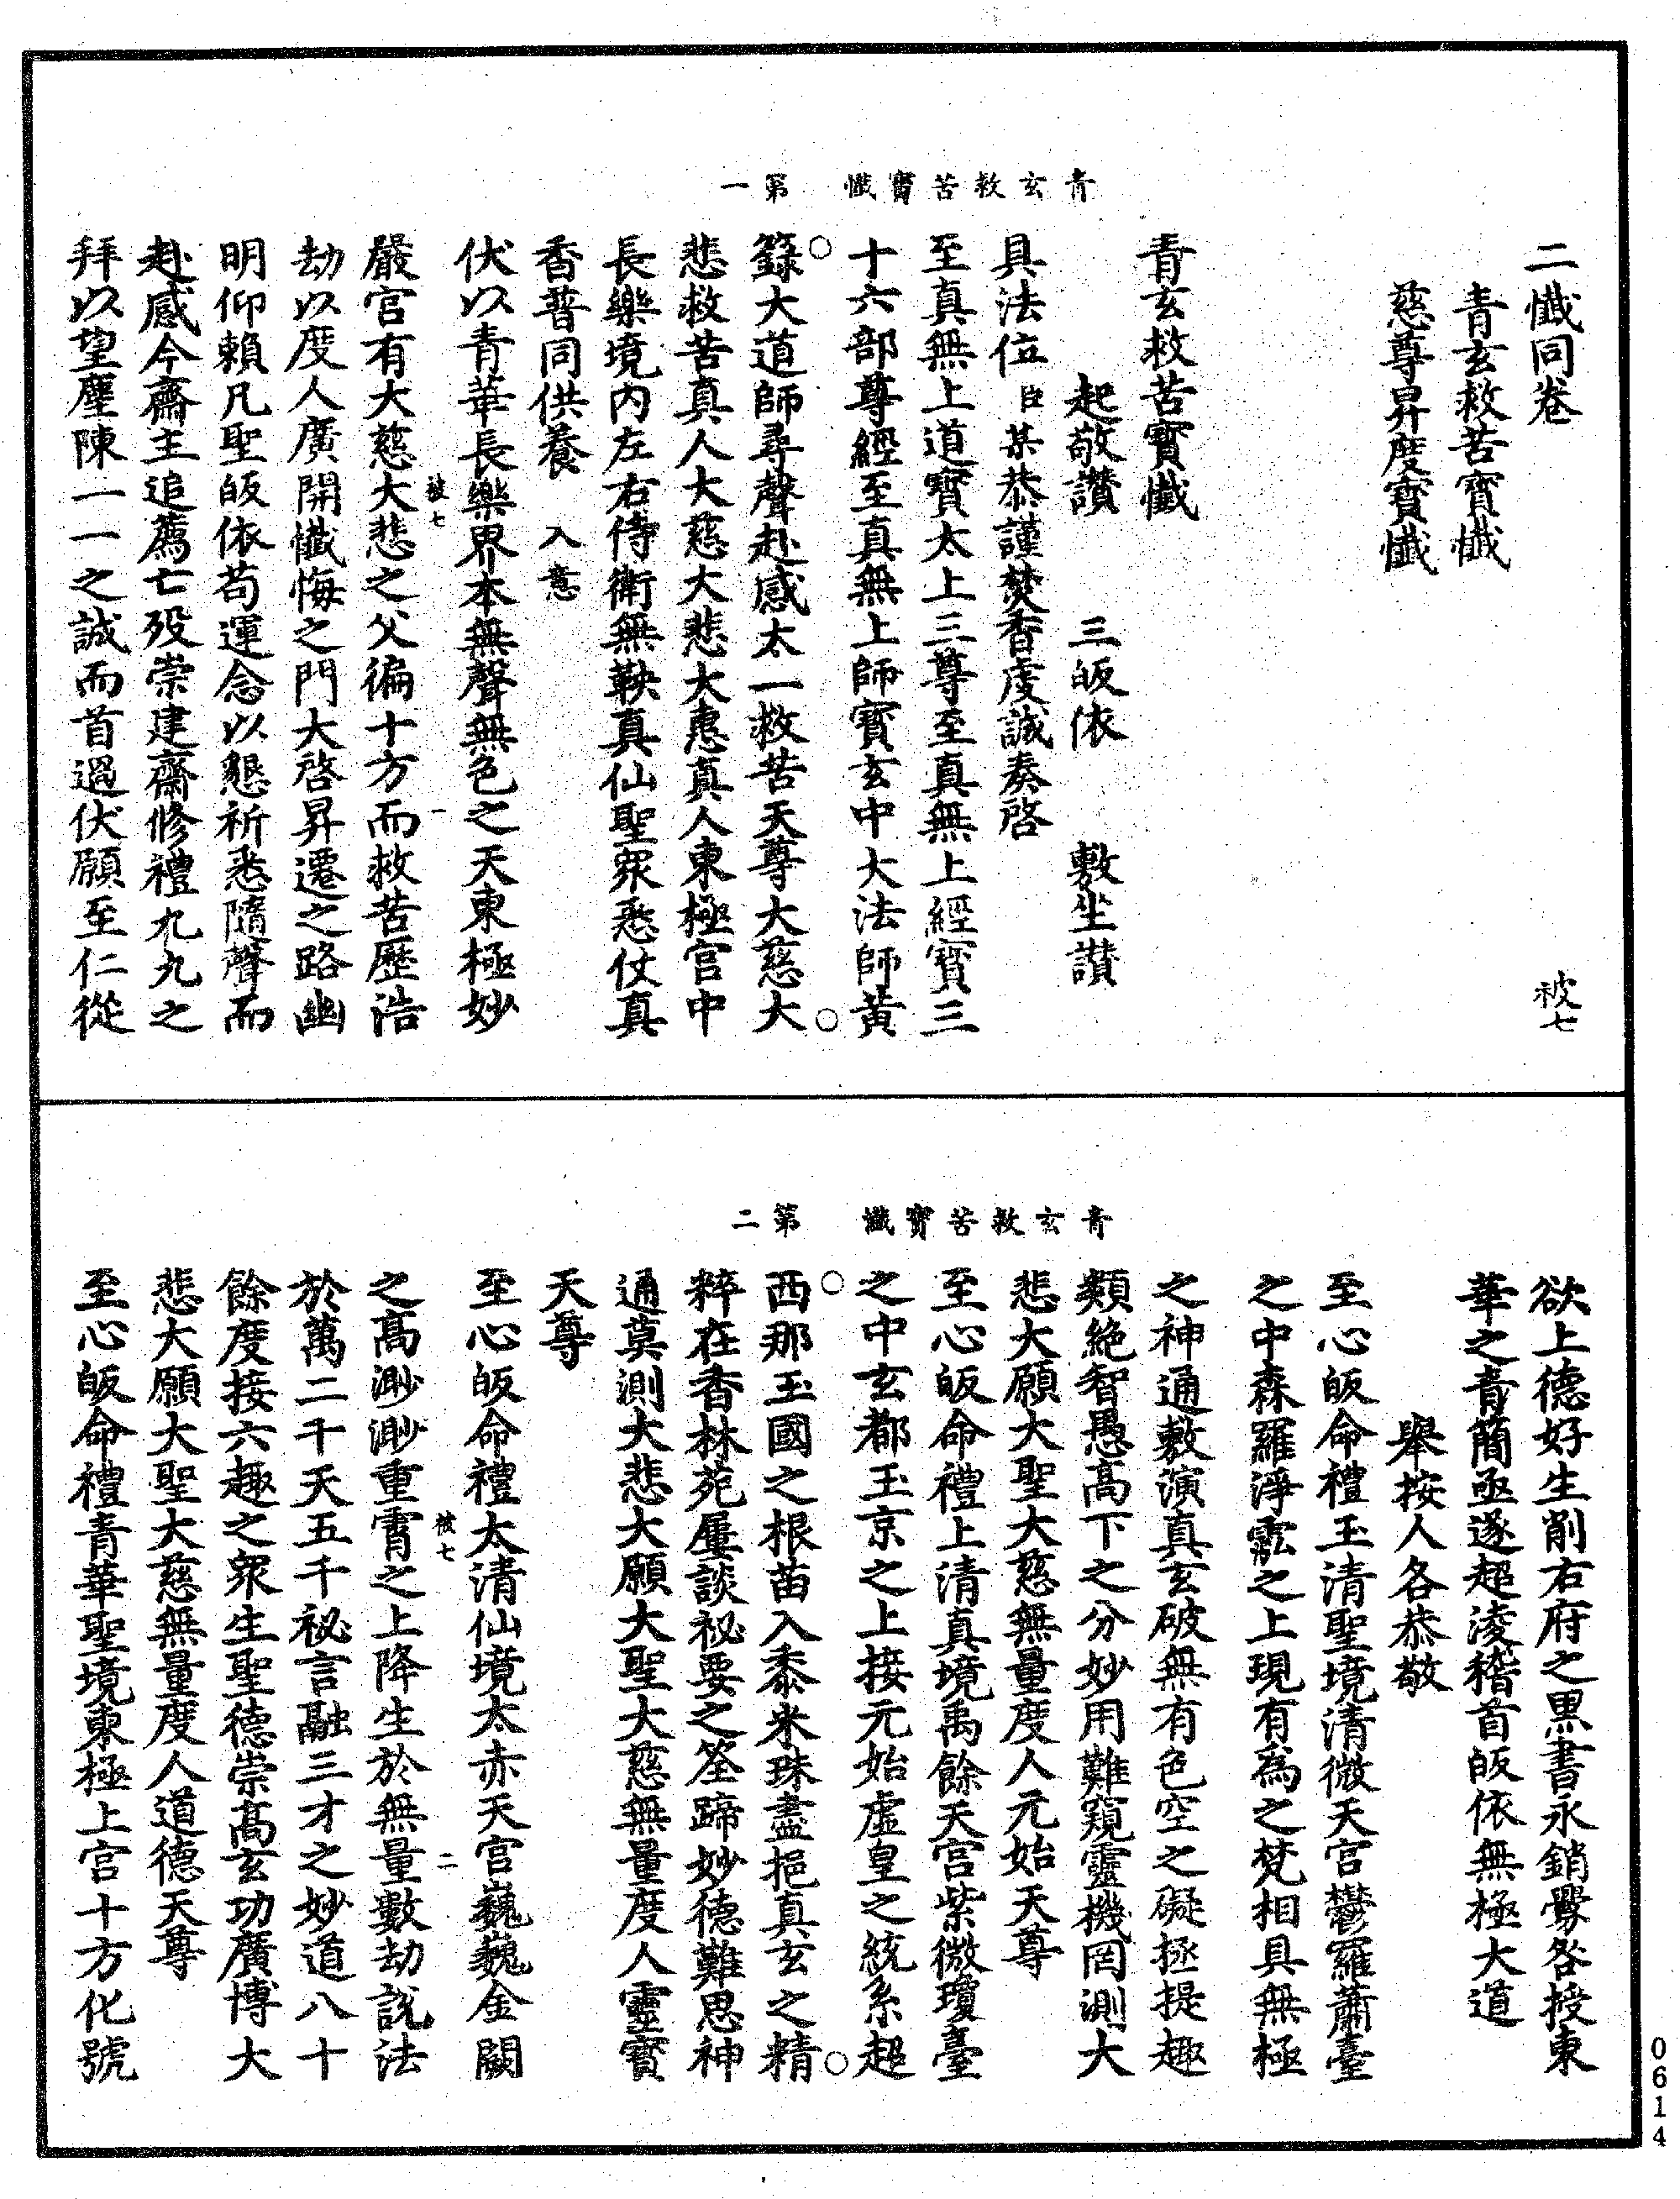 青玄救苦寶懺　第一
二懺同卷　被七
青玄救苦寶懺
慈尊昇度寶懺
青玄救苦寶懺
起敬讚　三皈依　敷坐讃
具法位臣某恭謹焚香虔誠奏啓
至真無上道寶太上三尊至真無上經寶三
十六部尊經至真無上師寶玄中大法師黃
籙大道師尋聲赴感太一救苦天尊大慈大
悲救苦真人大慈大悲大惠真人東極宮中
長樂境內左右侍衛無鞅真仙聖眾悉仗真
香普同供養　入意
伏以青華長樂界本無聲無色之天東極妙
被七　一
嚴宮有大慈大悲之父徧十方而救苦歷浩
劫以度人廣開懺悔之門大啓昇遷之路幽
明仰賴凡聖皈依苟運念以懇祈悉隨聲而
赴感今齋主追薦亡歿崇建齋修禮九九之
拜以望塵陳一一之誠而首過伏願至仁從
青玄救苦寶懺　第二
欲上德好生削右府之黑書永銷釁咎授東
華之青簡亟遂超淩稽首皈依無極大道
舉按人各恭敬
至心皈命禮玉清聖境清微天宮鬱羅蕭臺
之中森羅淨霐之上現有為之梵相具無極
之神通敷演真玄破無有色空之礙拯提趣
類絶智愚高下之分妙用難窺靈機罔測大
悲大願大聖大慈無量度人元始天尊
至心皈命禮上清真境禹餘天宮紫微瓊臺
之中玄都玉京之上接元始虛皇之統系超
西那玉國之根苗入黍米珠盡挹真玄之精
粹在香林苑屢談祕要之筌蹄妙德難思神
通莫測大悲大願大聖大慈無量度人靈寶
天尊
至心皈命禮太清仙境太赤天宮巍巍金闕
被七　二
之高渺渺重霄之上降生於無量數劫說法
於萬二千天五千祕言融三才之妙道八十
餘度接六趣之眾生聖德崇高玄功廣博大
悲大願大聖大慈無量度人道德天尊
至心皈命禮青華聖境東極上宮十方化號
0614